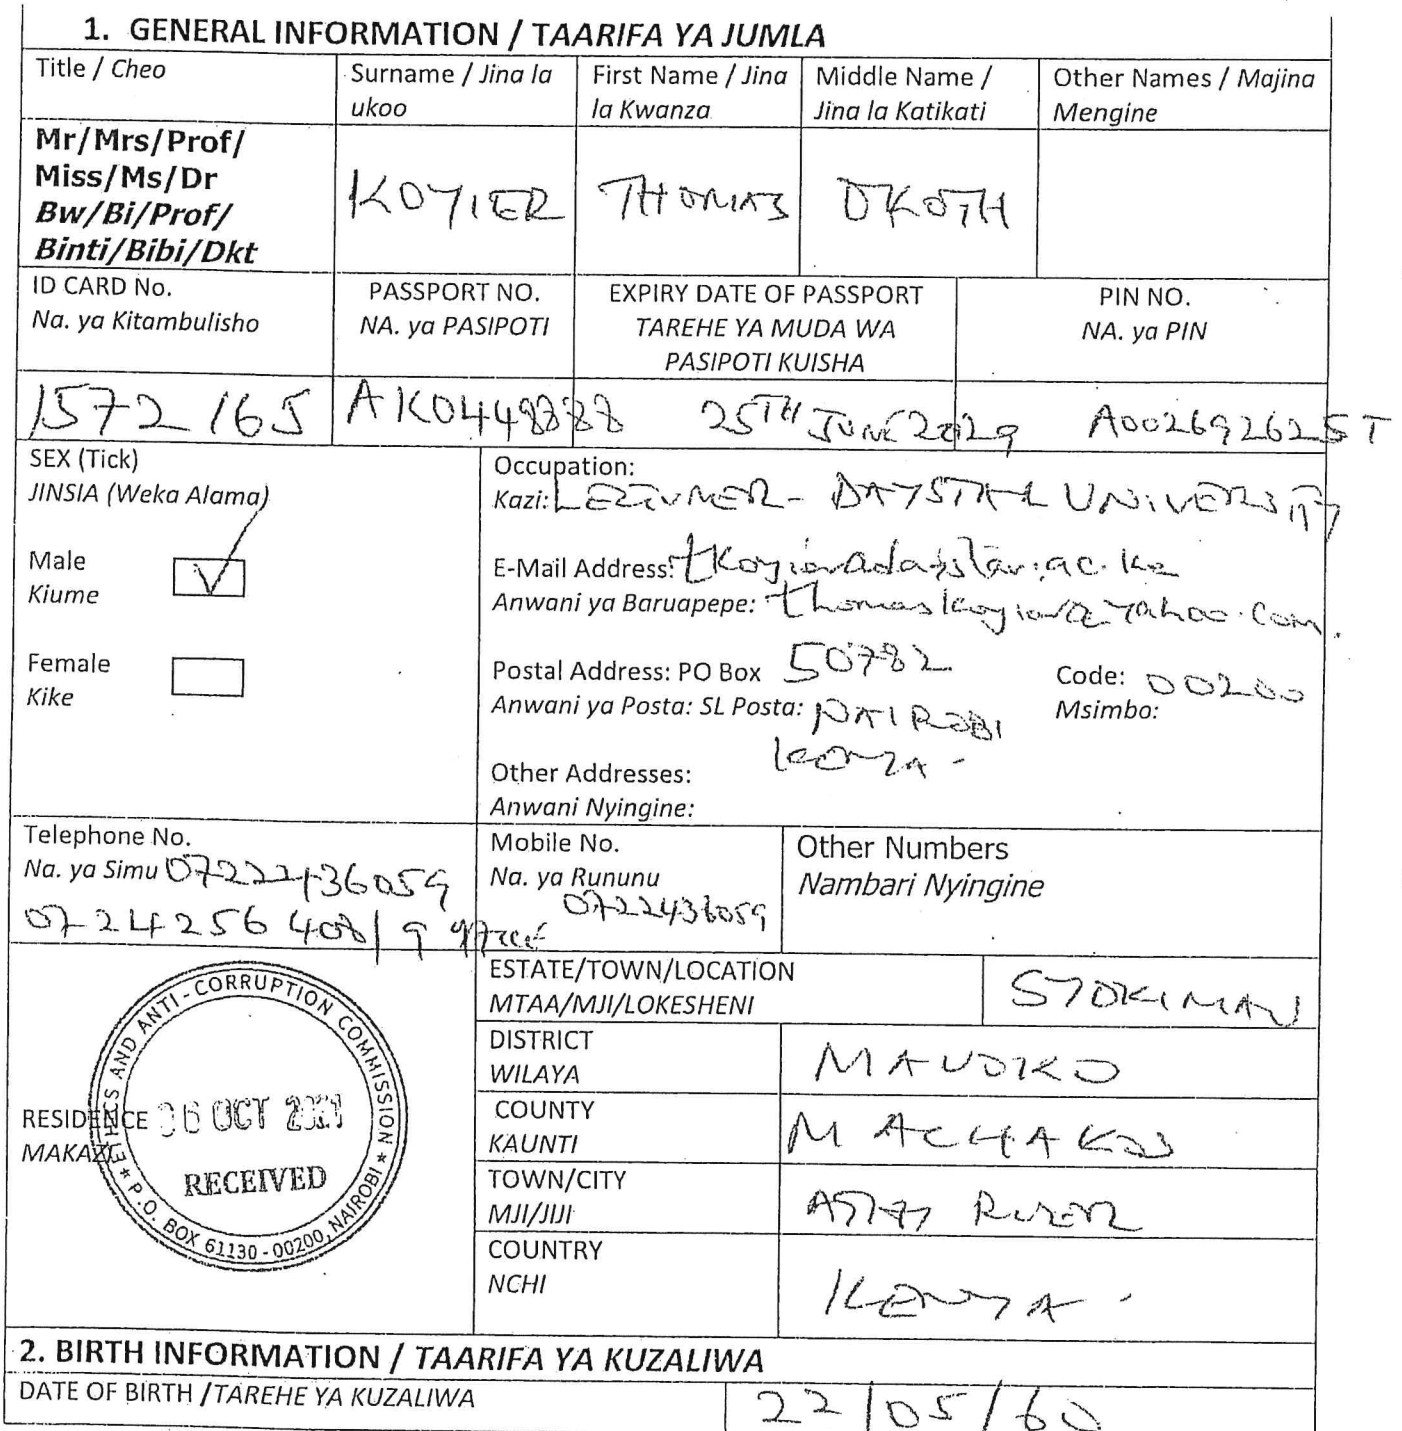 1. GENERAL INFORMATION / TAARIFA YA JUMLA
Title / Cheo
Surname / Jina la ukoo
First Name / Jina la Kwanza
Middle Name / Jina la Katikati
Other Names / Majina Mengine
Mr/Mrs/Prof/
Miss/Ms/Dr
Bw/Bi/Prof/
Binti/Bibi/Dkt
KOYIER
THOMAS
OKOTH
ID CARD No.
Na. ya Kitambulisho
PASSPORT NO.
NA. ya PASIPOTI
EXPIRY DATE OF PASSPORT
TAREHE YA MUDA WA
PASIPOTI KUISHA
PIN NO.
NA. ya PIN
1572165
AK0448888
25TH JUNE 2029
A002692625T
SEX (Tick)
JINSIA (Weka Alama)
Male
Kiume
Female
Kike
Occupation:
Kazi: LECTURER - DAYSTAR UNIVERSITY
E-Mail Address: tkoyier@daystar.ac.ke
Anwani ya Baruapepe: thomaskoyier@yahoo.com.
Postal Address: PO Box 50782
Code: 00200
Anwani ya Posta: SL Posta: NAIROBI
Msimbo:
KENYA -
Other Addresses:
Anwani Nyingine:
Telephone No.
Na. ya Simu 0722436059
0724256408/9
Mobile No.
Na. ya Rununu
0722436059
Other Numbers
Nambari Nyingine
RESIDENCE
MAKAZI
ETHICS AND ANTI-CORRUPTION COMMISSION
06 OCT 2021
RECEIVED
P.O. BOX 61130 - 00200, NAIROBI
ESTATE/TOWN/LOCATION
MTAA/MJI/LOKESHENI
SYOKIMAU
DISTRICT
WILAYA
MAVOKO
COUNTY
KAUNTI
MACHAKOS
TOWN/CITY
MJI/JIJI
ATHI RIVER
COUNTRY
NCHI
KENYA -
2. BIRTH INFORMATION / TAARIFA YA KUZALIWA
DATE OF BIRTH /TAREHE YA KUZALIWA
22/05/60